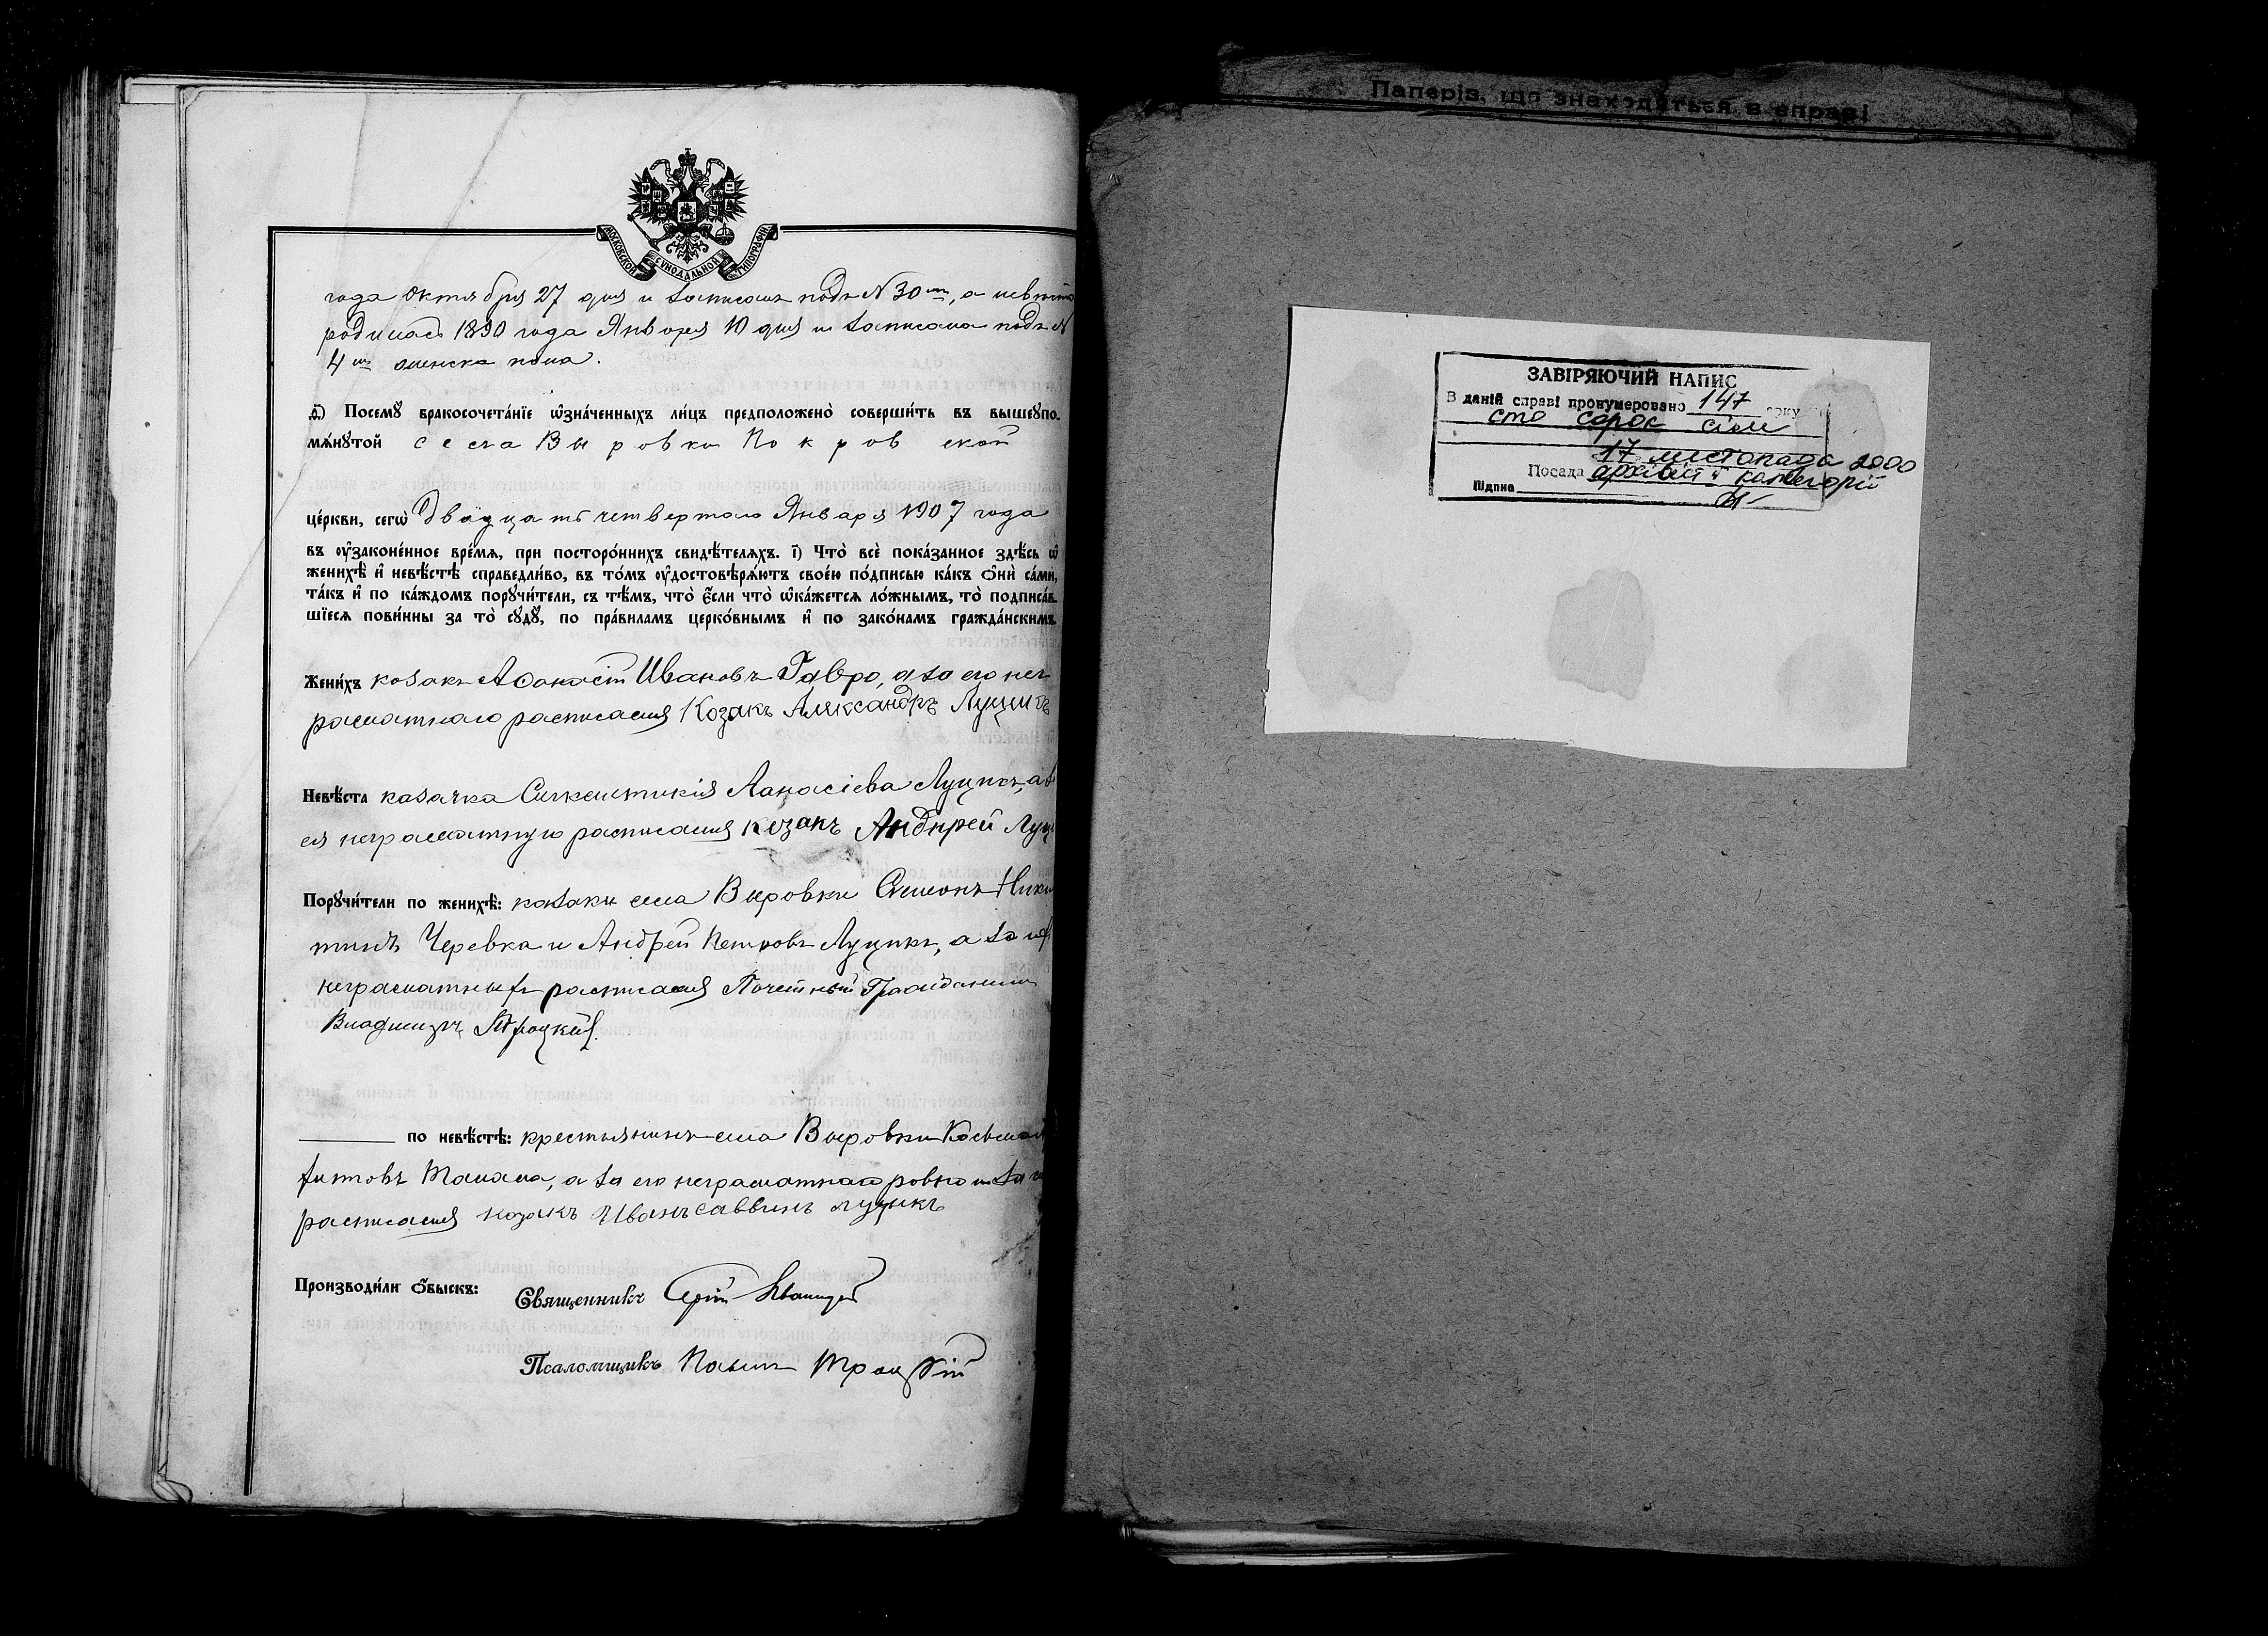 МОСКОВСКОЙ СУНОДАЛЬНОЙ ТИПОГРАФІИ
года Октября 27 дня и записанъ подъ № 30мъ, а невѣста
родилась 1890 года Января 10 дня и записана подъ №
4мъ женска пола.
д҃) Посемꙋ̀ бракосочета́нїе ѡ҆зна́ченныхъ ли́цъ предположено̀ соверши́ть въ вышеꙋпо-
мѧ́нꙋтой села Выровки Покровской
це́ркви, сегѡ̀ двадцать четвертаго Января 1907 года
въ ᲂу҆законе́нное вре́мѧ, при посторо́ннихъ свидѣ́телѧхъ. і҃) Что̀ всѐ пока́занное здѣ́сь ѡ҆
женихѣ̀ и҆ невѣ́стѣ справедли́во, въ то́мъ ᲂу҆достовѣрѧ́ютъ свое́ю по́дписью ка́къ ѻ҆нѝ са́ми,
та́къ и҆ по ка́ждомъ порꙋчи́тели, съ тѣ́мъ, что̀ є҆́сли что̀ ѡ҆ка́жетсѧ ло́жнымъ, то̀ подписа́в-
шїесѧ пови́нны за то̀ сꙋдꙋ̀, по пра́виламъ церко́внымъ и҆ по зако́намъ гражда́нскимъ.
Жени́хъ козакъ Аѳанасій Ивановъ Гавро, а за его нег
рамотнаго расписался Козакъ Аляксандръ Луцикъ
Невѣ́ста казачка Аѳанасіева Луцикъ, а за
ея неграмотную расписался козакъ Андирей Луц
Порꙋчи́тели по женихѣ̀: козаки села Выровки Симеонъ Ники
тинъ Черевка и Андрей Петровъ Луцикъ, а за ихъ
неграмотныхъ расписался Почетный Гражданинъ
Владимиръ Троцкій.
по невѣ́стѣ: крестьянинъ села Выровки Косьма
Титовъ а за его неграмотнаго ровно и за
расписался козакъ Иванъ Саввинъ Луцикъ
Производи́ли ѻ҆́быскъ: Священникъ Сергій
Псаломщикъ Павелъ Троцкій
Паперів, що знаходяться в справі
ЗАВІРЯЮЧИЙ НАПИС
В даній справі пронумеровано 147 арку
сто сорок сім
17 листопада 2000
Посада архівіст категорії
Підпис